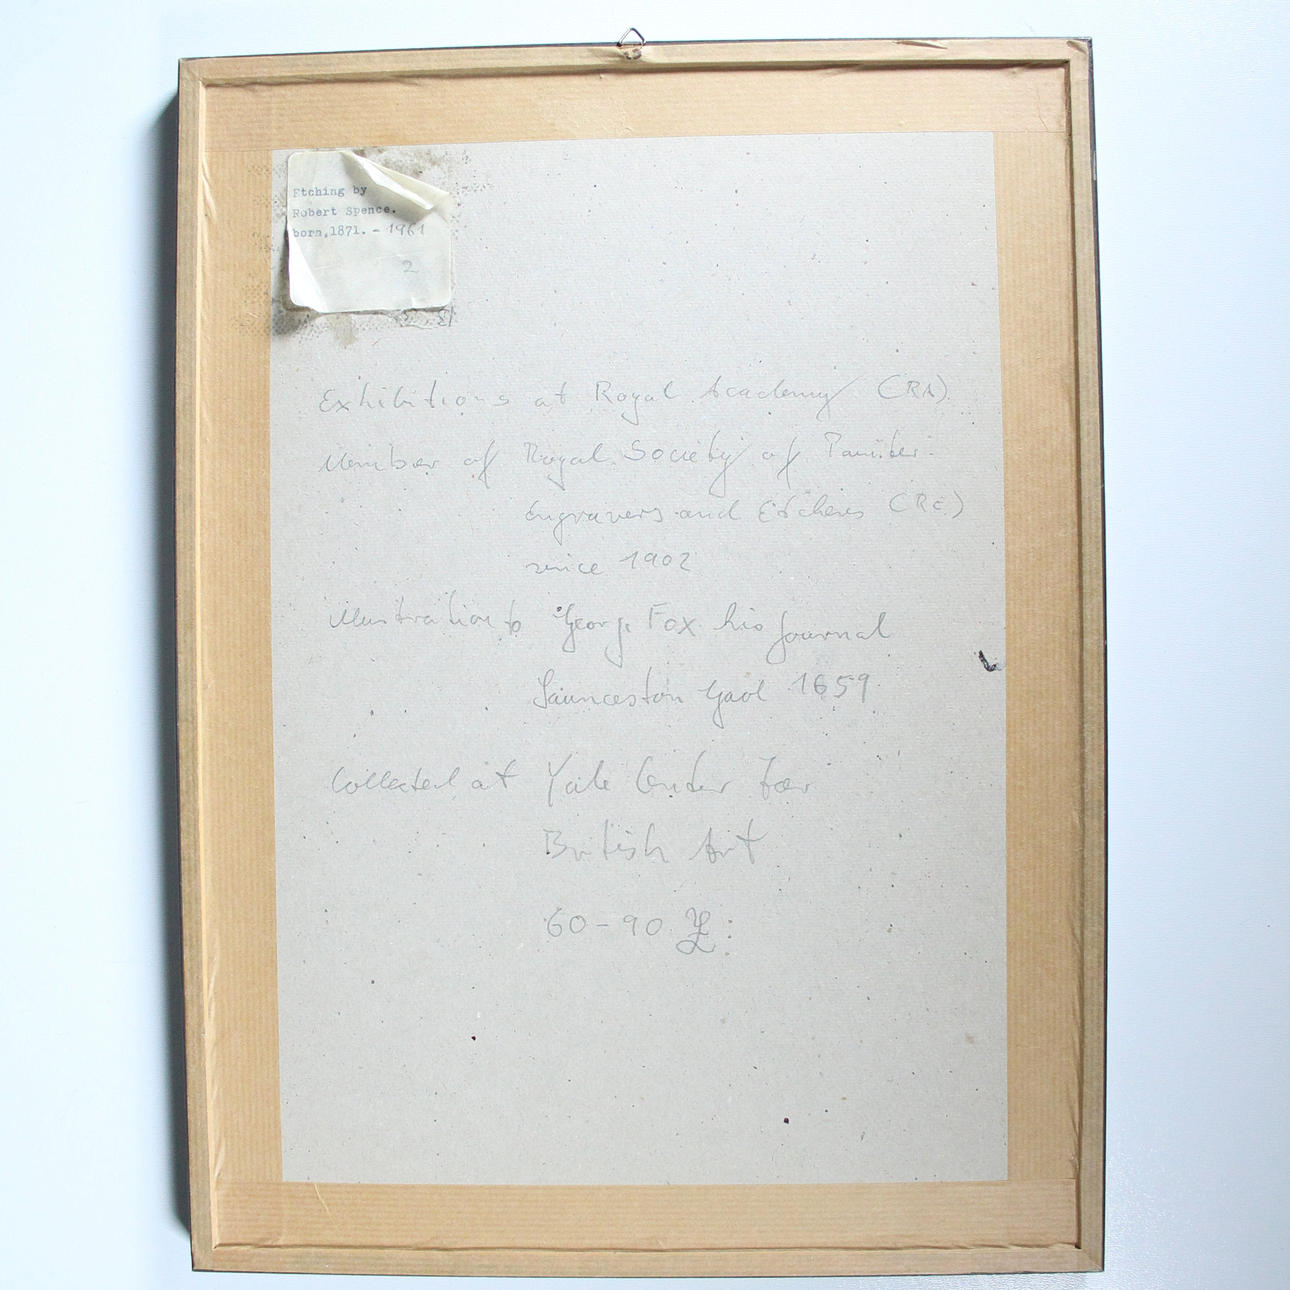 Etching by
Robert Spence.
born, 1871. - 1961
2
Exhibitions at Royal Academy (RA)
Member of Royal Society of Painter-
Engravers and Etchers (RE)
since 1902
Illustration to George Fox his Journal
Launceston Gaol 1659
Collected at Yale Center for
British Art
60-90 £: